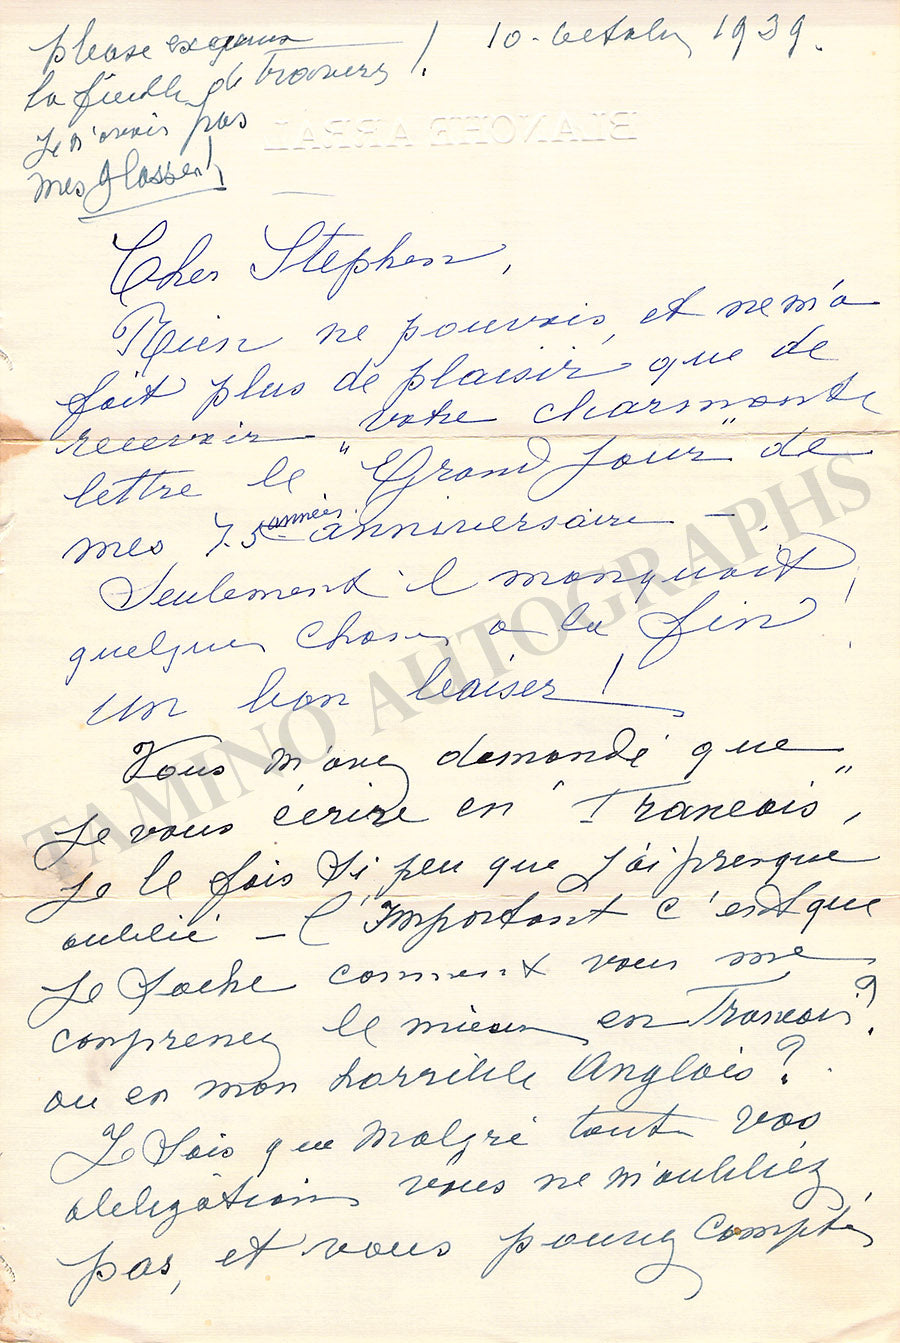 please excuse
la feuille de travers !
Je n'avais pas
mes glasses !
10 - October 1939.
BLANCHE ARRAL
Cher Stephen,
Rien ne pouvais, et ne m'a
fait plus de plaisir que de
recevoir votre charmante
lettre le "Grand Jour" de
mes 75 années anniversaire -.
Seulement il manquait
quelques choses a la fin !
un bon baiser !
Vous m'avez demandé que
Je vous écrire en "Francais",
je le fais si peu que j'ai presque
oublié - l'Important c'est que
Je sache comment vous me
comprenez le mieux en Francais ?
ou en mon horrible Anglais ?
Je sais que malgré toute vos
obligations vous ne m'oubliez
pas, et vous pouvez compter
TAMINO AUTOGRAPHS